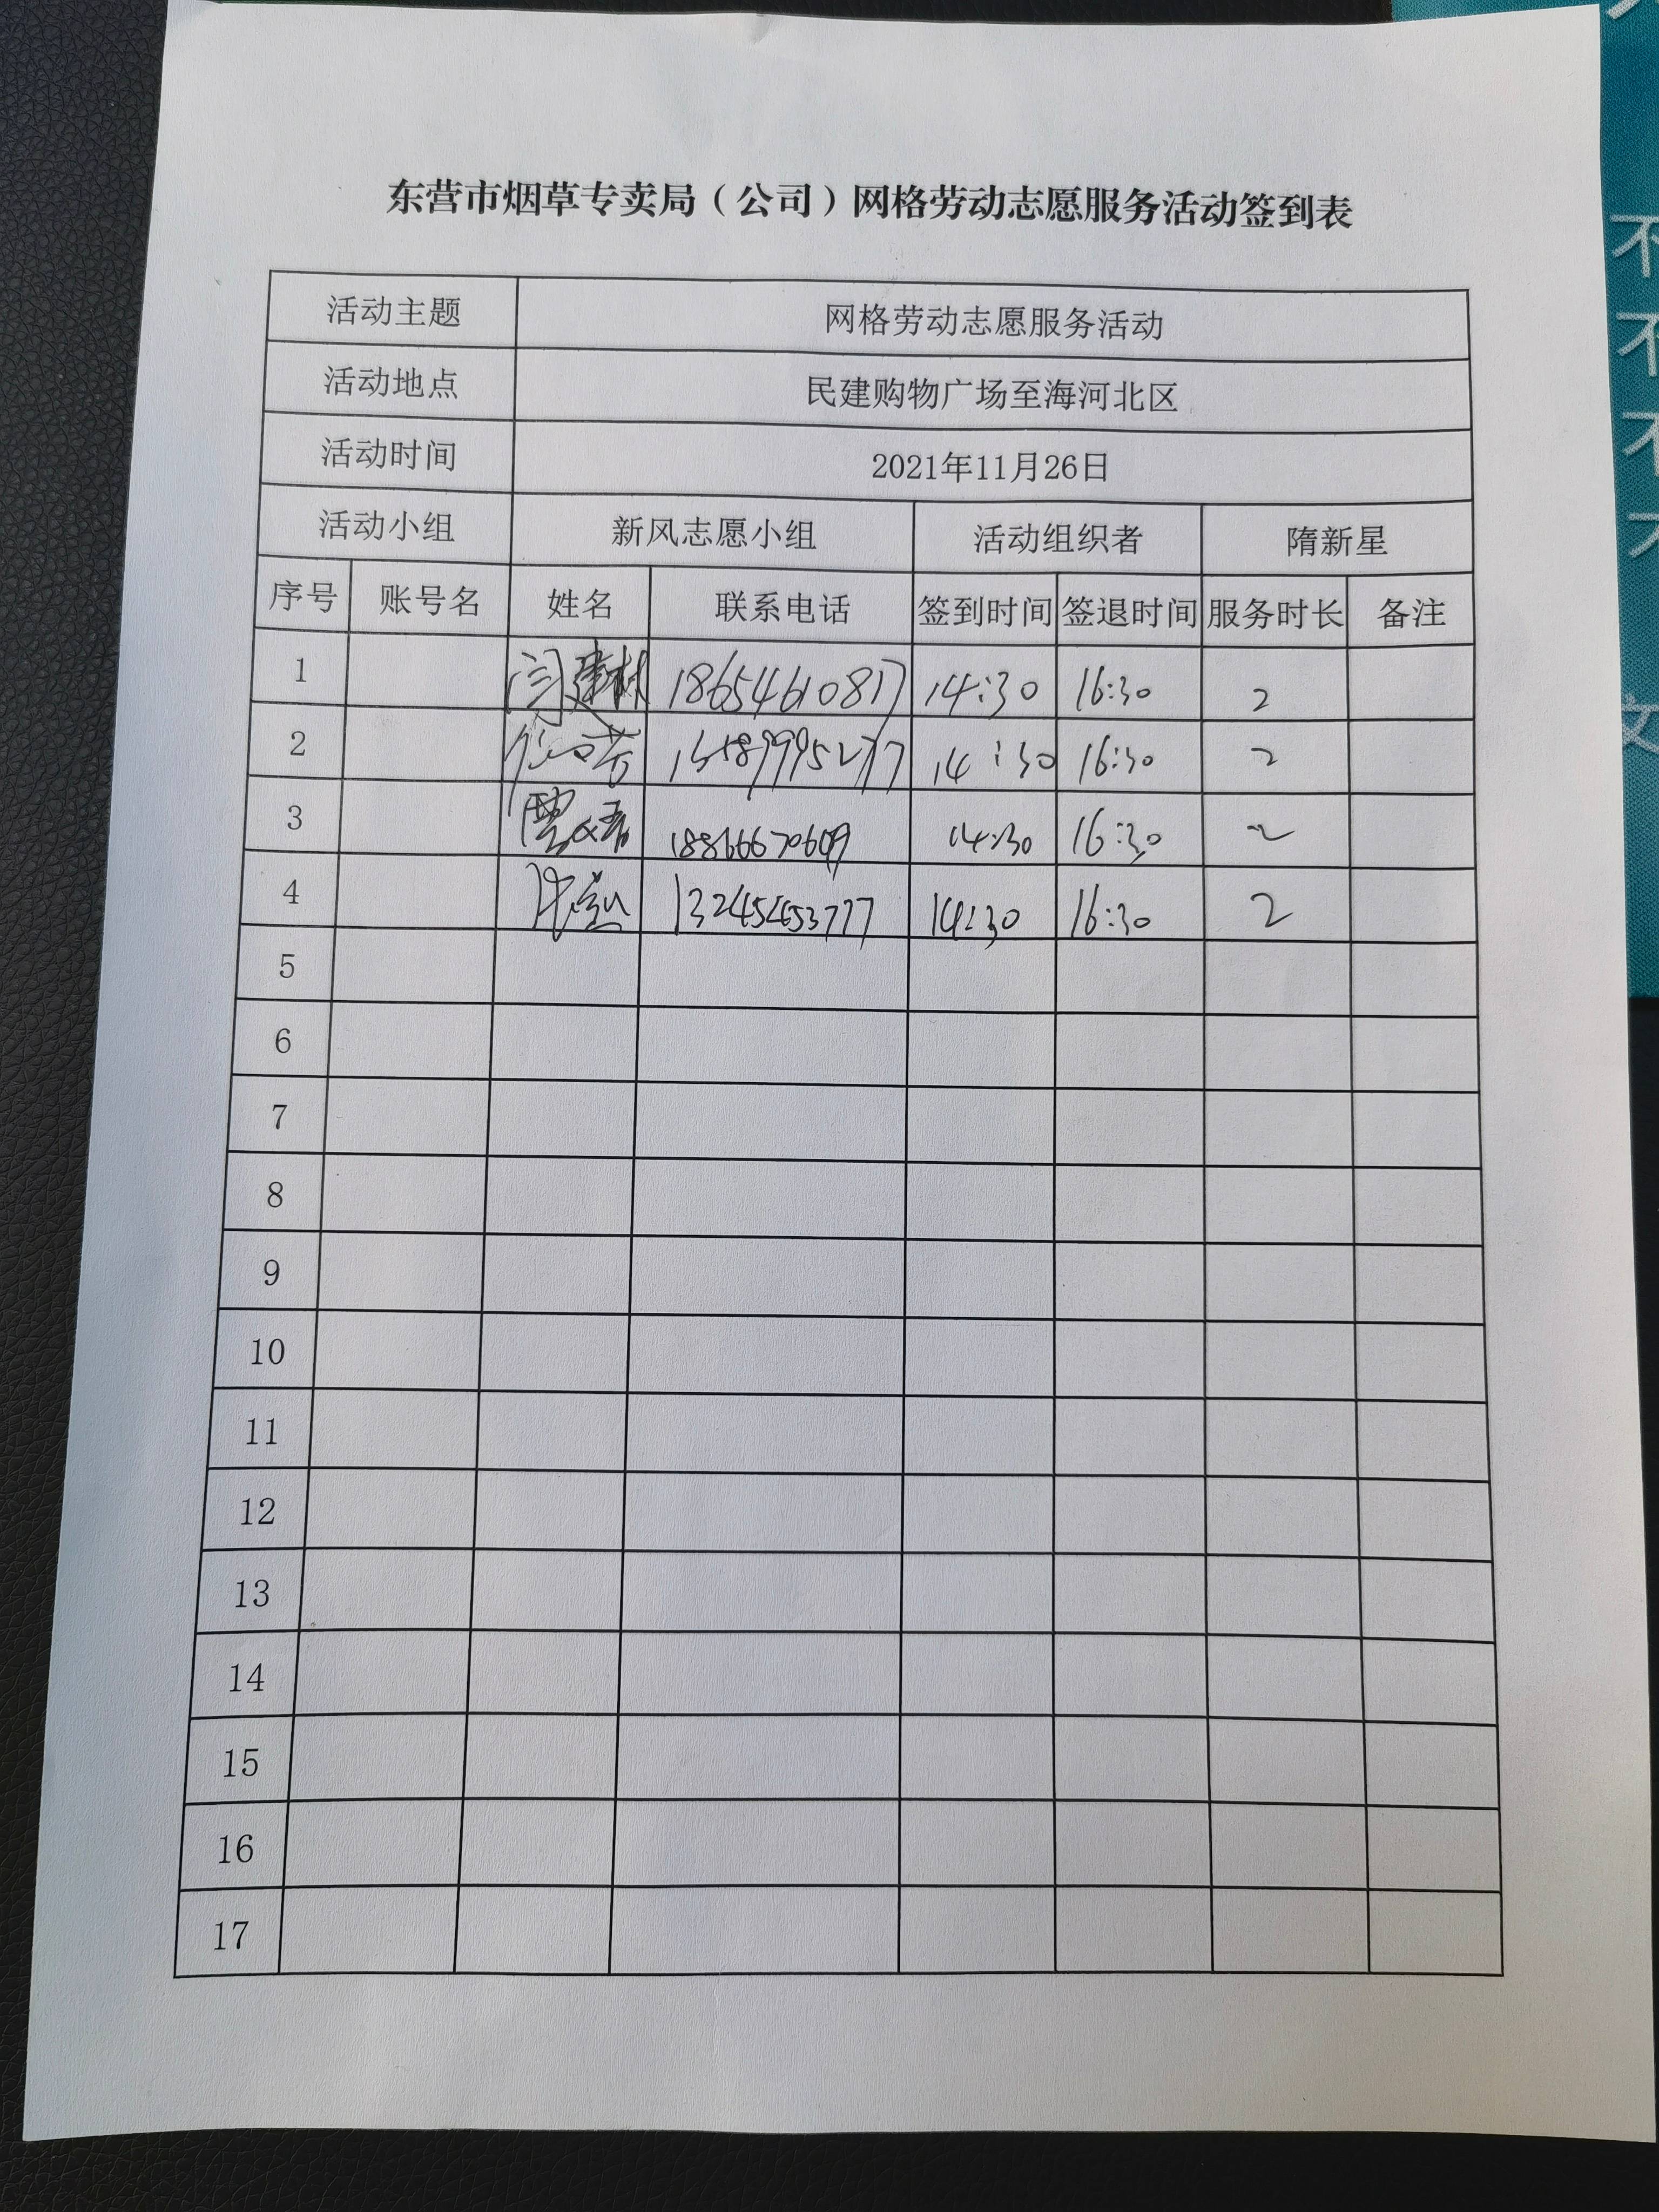 东营市烟草专卖局（公司）网格劳动志愿服务活动签到表
活动主题 网格劳动志愿服务活动
活动地点 民建购物广场至海河北区
活动时间 2021年11月26日
活动小组 新风志愿小组 活动组织者 隋新星
序号 账号名 姓名 联系电话 签到时间 签退时间 服务时长 备注
1 闫建林 18654610817 14:30 16:30 2
2 14:30 16:30 2
3 14:30 16:30 2
4 13245453777 14:30 16:30 2
5
6
7
8
9
10
11
12
13
14
15
16
17
不
不
不
文